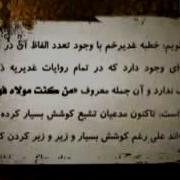 گوییم: خطبه غدیرخم با وجود تعدد الفاظ آن در
ای وجود دارد که در تمام روایات غدیریه
ندارد و آن جمله معروف «من کنت مولاه
است. تاکنون مدعیان تشیع کوشش بسیار کرده
اند علی رغم کوشش بسیار و زیر و زبر کردن